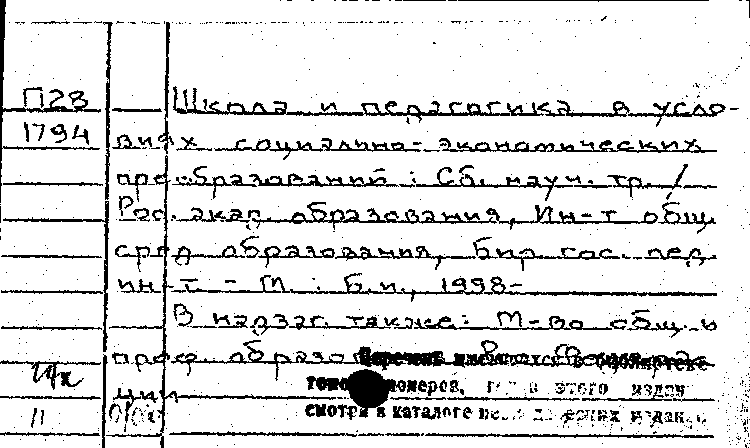 П28
1794
Школа и педагогика в усло-
виях социально-экономических
преобразований : Сб. науч. тр. /
Рос. акад. образования, Ин-т общ.
сред. образования, Бир. гос. пед.
ин-т. - М. : Б.и., 1998-
В надзаг. также: М-во общ. и
проф. образо
Перечень имеющихся в библиотеке
ции
номеров, этого издан
смотри в каталоге изданий